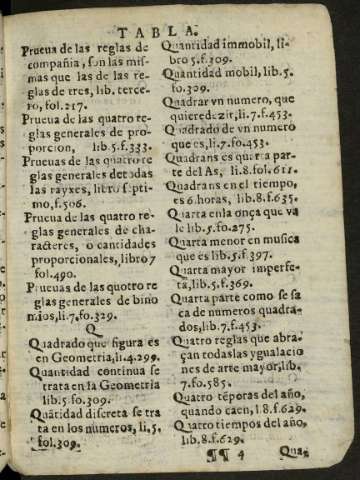 TABLA.
Prueua de las reglas de
compañia, son las mis-
mas que las de las re-
glas de tres, lib. terce-
ro, fol.217.
Prueua de las quatro re-
glas generales de pro-
porcion, lib.5.f.333.
Prueuas de las quatro re
glas generales de todas
las rayzes, libro septi-
mo, f.506.
Prueua de las quatro re-
glas generales de cha-
racteres, o cantidades
proporcionales, libro 7
fol.490.
Prueuas de las quotro re
glas generales de bino
mios, li.7.fo.329.
Q
Quadrado que figura es
en Geometria, li.4.299.
Quantidad continua se
trata en la Geometria
lib.5.fo.309.
Quãtidad discreta se tra
ta en los numeros, li.5.
fol.309.
Quantidad immobil, li-
bro 5.f.309.
Quantidad mobil, lib.5.
fo.309.
Quadrar vn numero, que
quiere dezir, li.7.f.453.
Quadrado de vn numero
que es, li.7.fo.453.
Quadrans es quarta par-
te del As, li.8.fol.611.
Quadrans en el tiempo,
es 6.horas, lib.8.f.635.
Quarta en la onça que va
le lib.5.fo.275.
Quarta menor en musica
que es lib.5.f.397.
Quarta mayor imperfe-
ta, lib.5.f.369.
Quarta parte como se sa
ca de numeros quadra-
dos, lib.7.f.453.
Quatro reglas que abra-
çan todas las ygualacio
nes de arte mayor, lib.
7.fo.585.
Quatro tẽporas del año,
quando caen, l.8.f.629.
Quatro tiempos del año,
lib.8.f.629.
¶¶ 4 Qua-